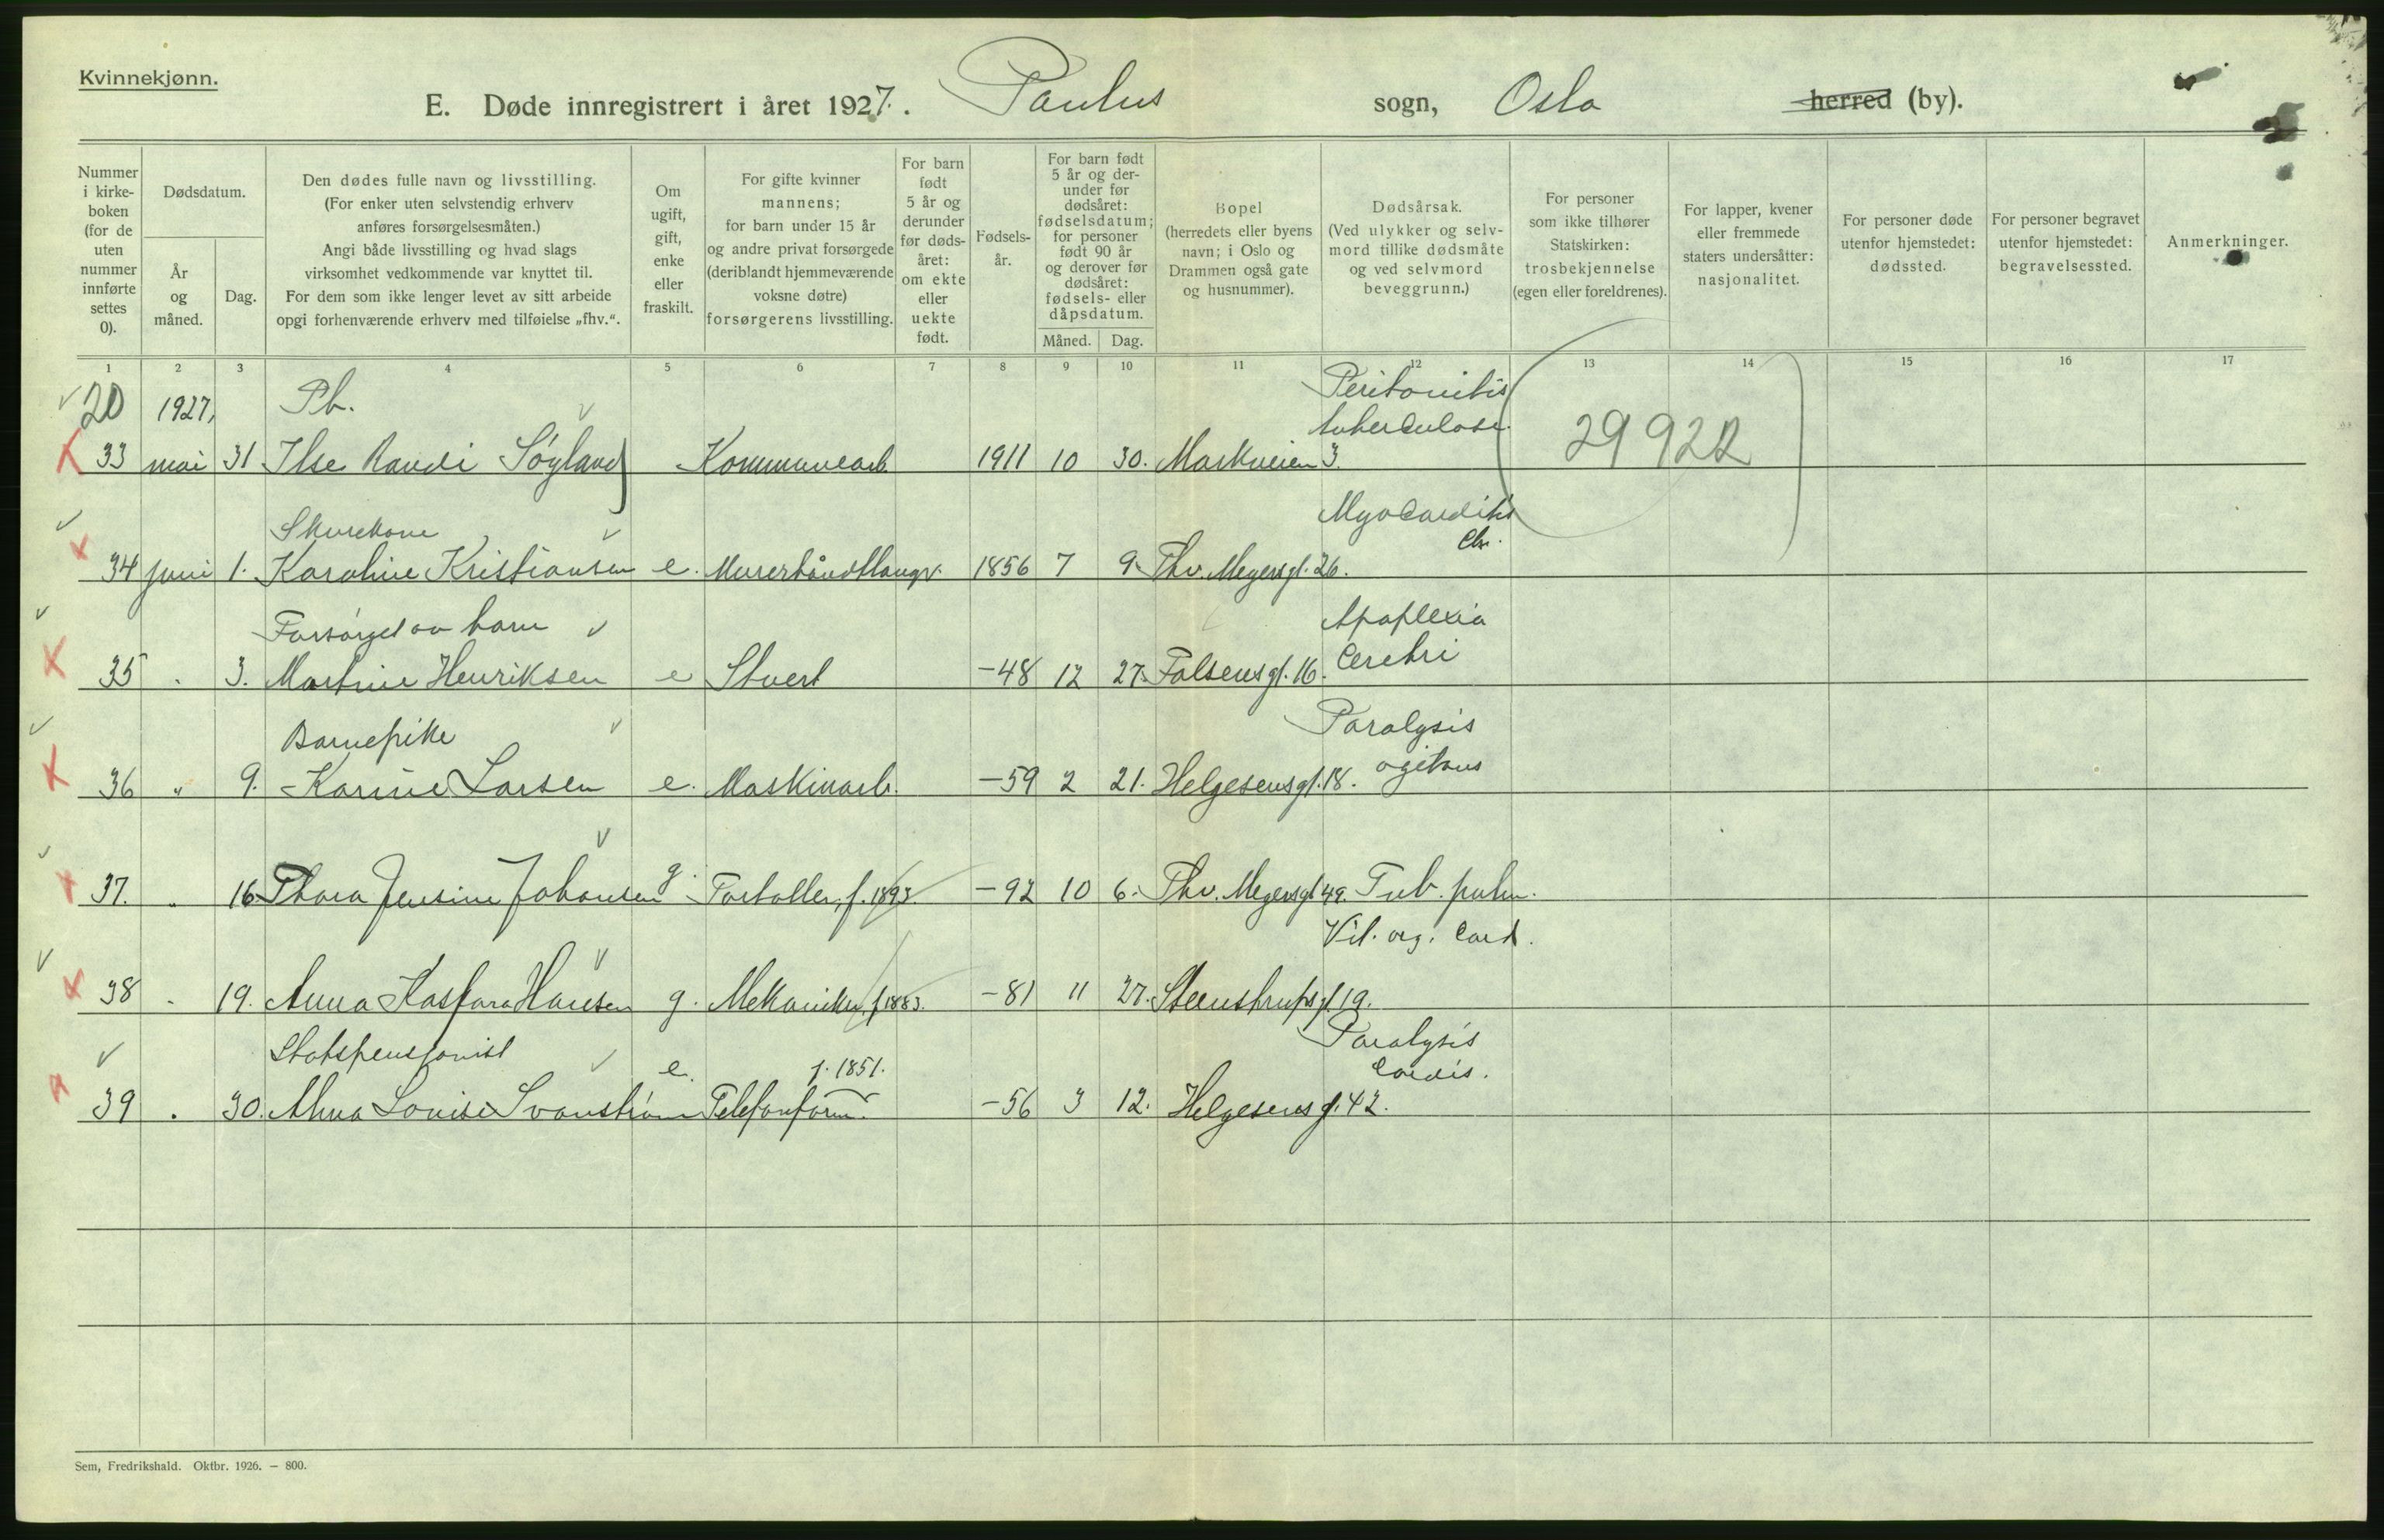 Kvinnekjønn.
E. Døde innregistrert i året 1927. Paulus sogn, Oslo herred (by).
Nummer i kirke- boken (for de uten nummer innførte settes 0).
Dødsdatum.
År og måned.
Dag.
Den dødes fulle navn og livsstilling.
(For enker uten selvstendig erhverv
anføres forsørgelsesmåten.)
Angi både livsstilling og hvad slags
virksomhet vedkommende var knyttet til.
For dem som ikke lenger levet av sitt arbeide
opgi forhenværende erhverv med tilføielse „fhv.“.
Om ugift, gift, enke eller fraskilt.
For gifte kvinner
mannens;
for barn under 15 år
og andre privat forsørgede
(deriblandt hjemmeværende
voksne døtre)
forsørgerens livsstilling.
For barn født 5 år og derunder før døds- året: om ekte eller uekte født.
Fødsels- år.
For barn født
5 år og der-
under før
dødsåret:
fødselsdatum;
for personer
født 90 år
og derover før
dødsåret:
fødsels- eller
dåpsdatum.
Måned. Dag.
Bopel
(herredets eller byens
navn; i Oslo og
Drammen også gate
og husnummer).
Dødsårsak.
(Ved ulykker og selv-
mord tillike dødsmåte
og ved selvmord
beveggrunn.)
For personer
som ikke tilhører
Statskirken:
trosbekjennelse
(egen eller foreldrenes).
For lapper, kvener
eller fremmede
staters undersåtter:
nasjonalitet.
For personer døde
utenfor hjemstedet:
dødssted.
For personer begravet
utenfor hjemstedet:
begravelsessted.
Anmerkninger.
1 2 3 4 5 6 7 8 9 10 11 12 13 14 15 16 17
20 1927, Pb. Peritonitis
tuberculosa. 29922
33 mai 31 Ilse Randi Søyland Kommunearb. 1911 10 30. Markveien 3.
Skurekone Myocarditis
chr.
34 juni 1. Karoline Kristiansen e. Murerhåndtlanger 1856 7 9. Thv. Meyersgt. 26.
Forsørget av barn Apoplexia
35 . 3. Martine Henriksen e Stuert -48 12 27. Falsensgt. 16. Cerebri
Barnepike Paralysis
36 " 9. Karine Larsen e. Maskinarb. -59 2 21. Helgesensgt. 18. agitans
37. " 16 Thora Jensine Johansen g. Fortoller, f. 1893. -92 10 6. Thv. Meyersgt 49. Tub. pulm.
Vit. org. Cord.
38 . 19. Anna Kaspara Hansen g. Mekaniker, f. 1883. -81 11 27. Steenstrupsgt. 19.
Statspensjonist e. f. 1851. Paralysis
cordis.
39 . 30. Alma Louise Svanstrøm Telefonform. -56 3 12. Helgesens gt. 42.
Sem, Fredrikshald. Oktbr. 1926. — 800.